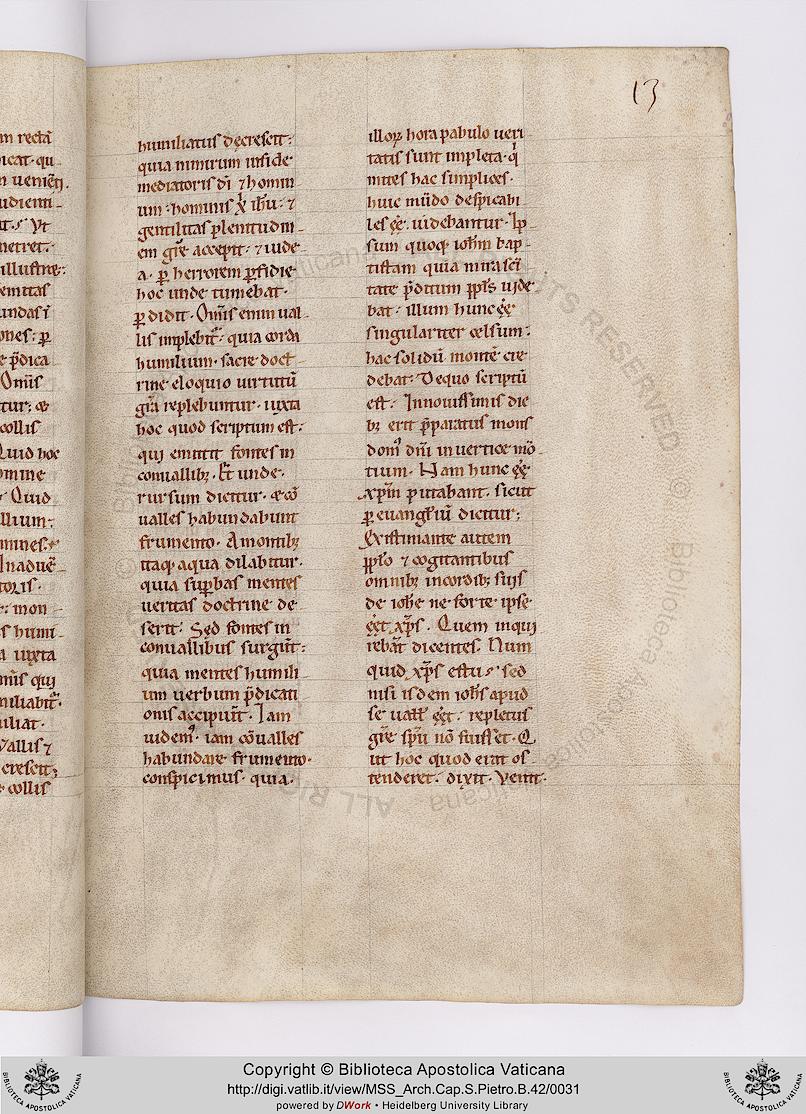 13
m rectā
icat· qu
n venieñ
udienti
t· s̛ Vt
metret·
illustre:
emitas
undas ī
ones: ꝑ
e p̄dica
Omīs
tur: &
collis
Quid hoc
omine
· Quid
llium·
mnes·
Inaduē
toris·
: mon
s humi
a iuxta
mīs qui
miliabit᷑·
iliat·
Vallis ⁊
crescit;
collis
humiliatus decrescit:
quia nimirum in fide
mediatoris dī ⁊ homin
um· hominis x̄ ihū· ⁊
gentilitas plenitudin
em grē accepit· ⁊ iude
a· ꝑ herrorem ꝑfidie
hoc unde tumebat·
ꝑdidit· Omīs enim ual
lis implebit᷑· quia corda
humilium· sacre doct
rine eloquio uirtutū
grā replebuntur· iuxta
hoc quod scriptum est:
qui emittit fontes in
conuallibꝫ· Et unde
rursum dicitur· & cō
ualles habundabunt
frumento· A montibꝫ
itaqꝫ aqua dilabitur·
quia suꝑbas mentes
ueritas doctrine de
serit· Sed fontes in
conuallibus surgūt:
quia mentes humili
um uerbum p̄dicati
onis accipiūt· Iam
uidemꝰ· iam cōualles
habundare frumento·
conspicimus· quia·
illoꝝ hora pabulo ueri
tatis sunt impleta· qͥ
mites hac simplices·
huic mūdo despicabi
les eē· uidebantur· Ip
sum quoqꝫ iohm̄ bap
tistam quia mira scī
tate p̄ditum ppl̄s uide
bat· illum hunc eē
singulariter celsum:
hac solidū montē cre
debat· De quo scriptū
est· In nouissimis die
bꝫ erit p̄paratus mons
domꝰ dn̄i in uertice mō
tium· Nam hunc eē
xp̄m putabant· sicut
ꝑ euangl̄iū dicitur;
Existimante autem
ppl̄o ⁊ cogitantibus
omnibꝫ in cordibꝫ suis
de iohe ne forte ipse
eēt xp̄s· Quem inqui
rebāt dicentes· Num
quid xp̄s es tu s̛ sed
nisi isdem ioh̄s apud
se uall̄ eēt· repletus
grē sp̄u nō fuisset· Q
ut hoc quod erat os
tenderet· dixit· Venit·
Copyright © Biblioteca Apostolica Vaticana
http://digi.vatlib.it/view/MSS_Arch.Cap.S.Pietro.B.42/0031
powered by DWork • Heidelberg University Library